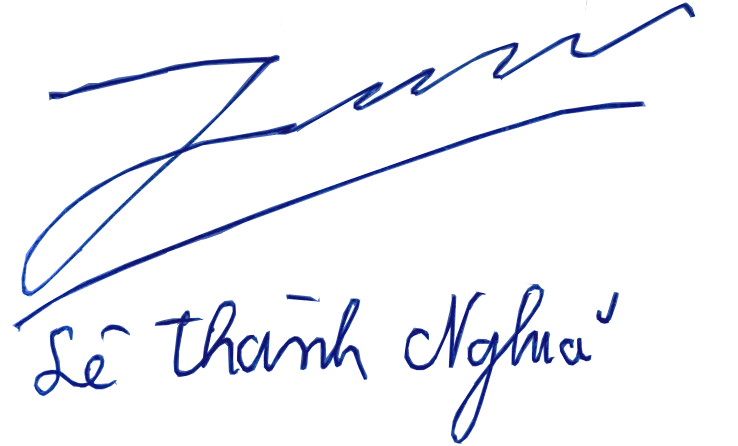 Lê Thành Nghĩa